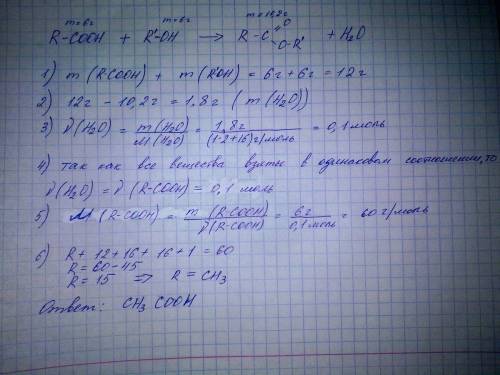 m=6г m=6г m=10,2г
R-COOH + R'-OH → R-C=O O-R' + H₂O
1) m (RCOOH) + m (R'OH) = 6г+6г = 12г
2) 12г - 10,2г = 1,8г ( m(H₂O))
3) ν(H₂O) = m(H₂O)/M(H₂O) = 1,8г/(1·2+16)г/моль = 0,1 моль
4) так как все вещества взяты в одинаковом соотношении, то
ν(H₂O) = ν(R-COOH) = 0,1 моль
5) M(R-COOH) = m(R-COOH)/ν(R-COOH) = 6г/0,1моль = 60г/моль
6) R + 12+16+16+1 = 60
R = 60-45
R = 15 ⇒ R = CH₃
Ответ: CH₃COOH